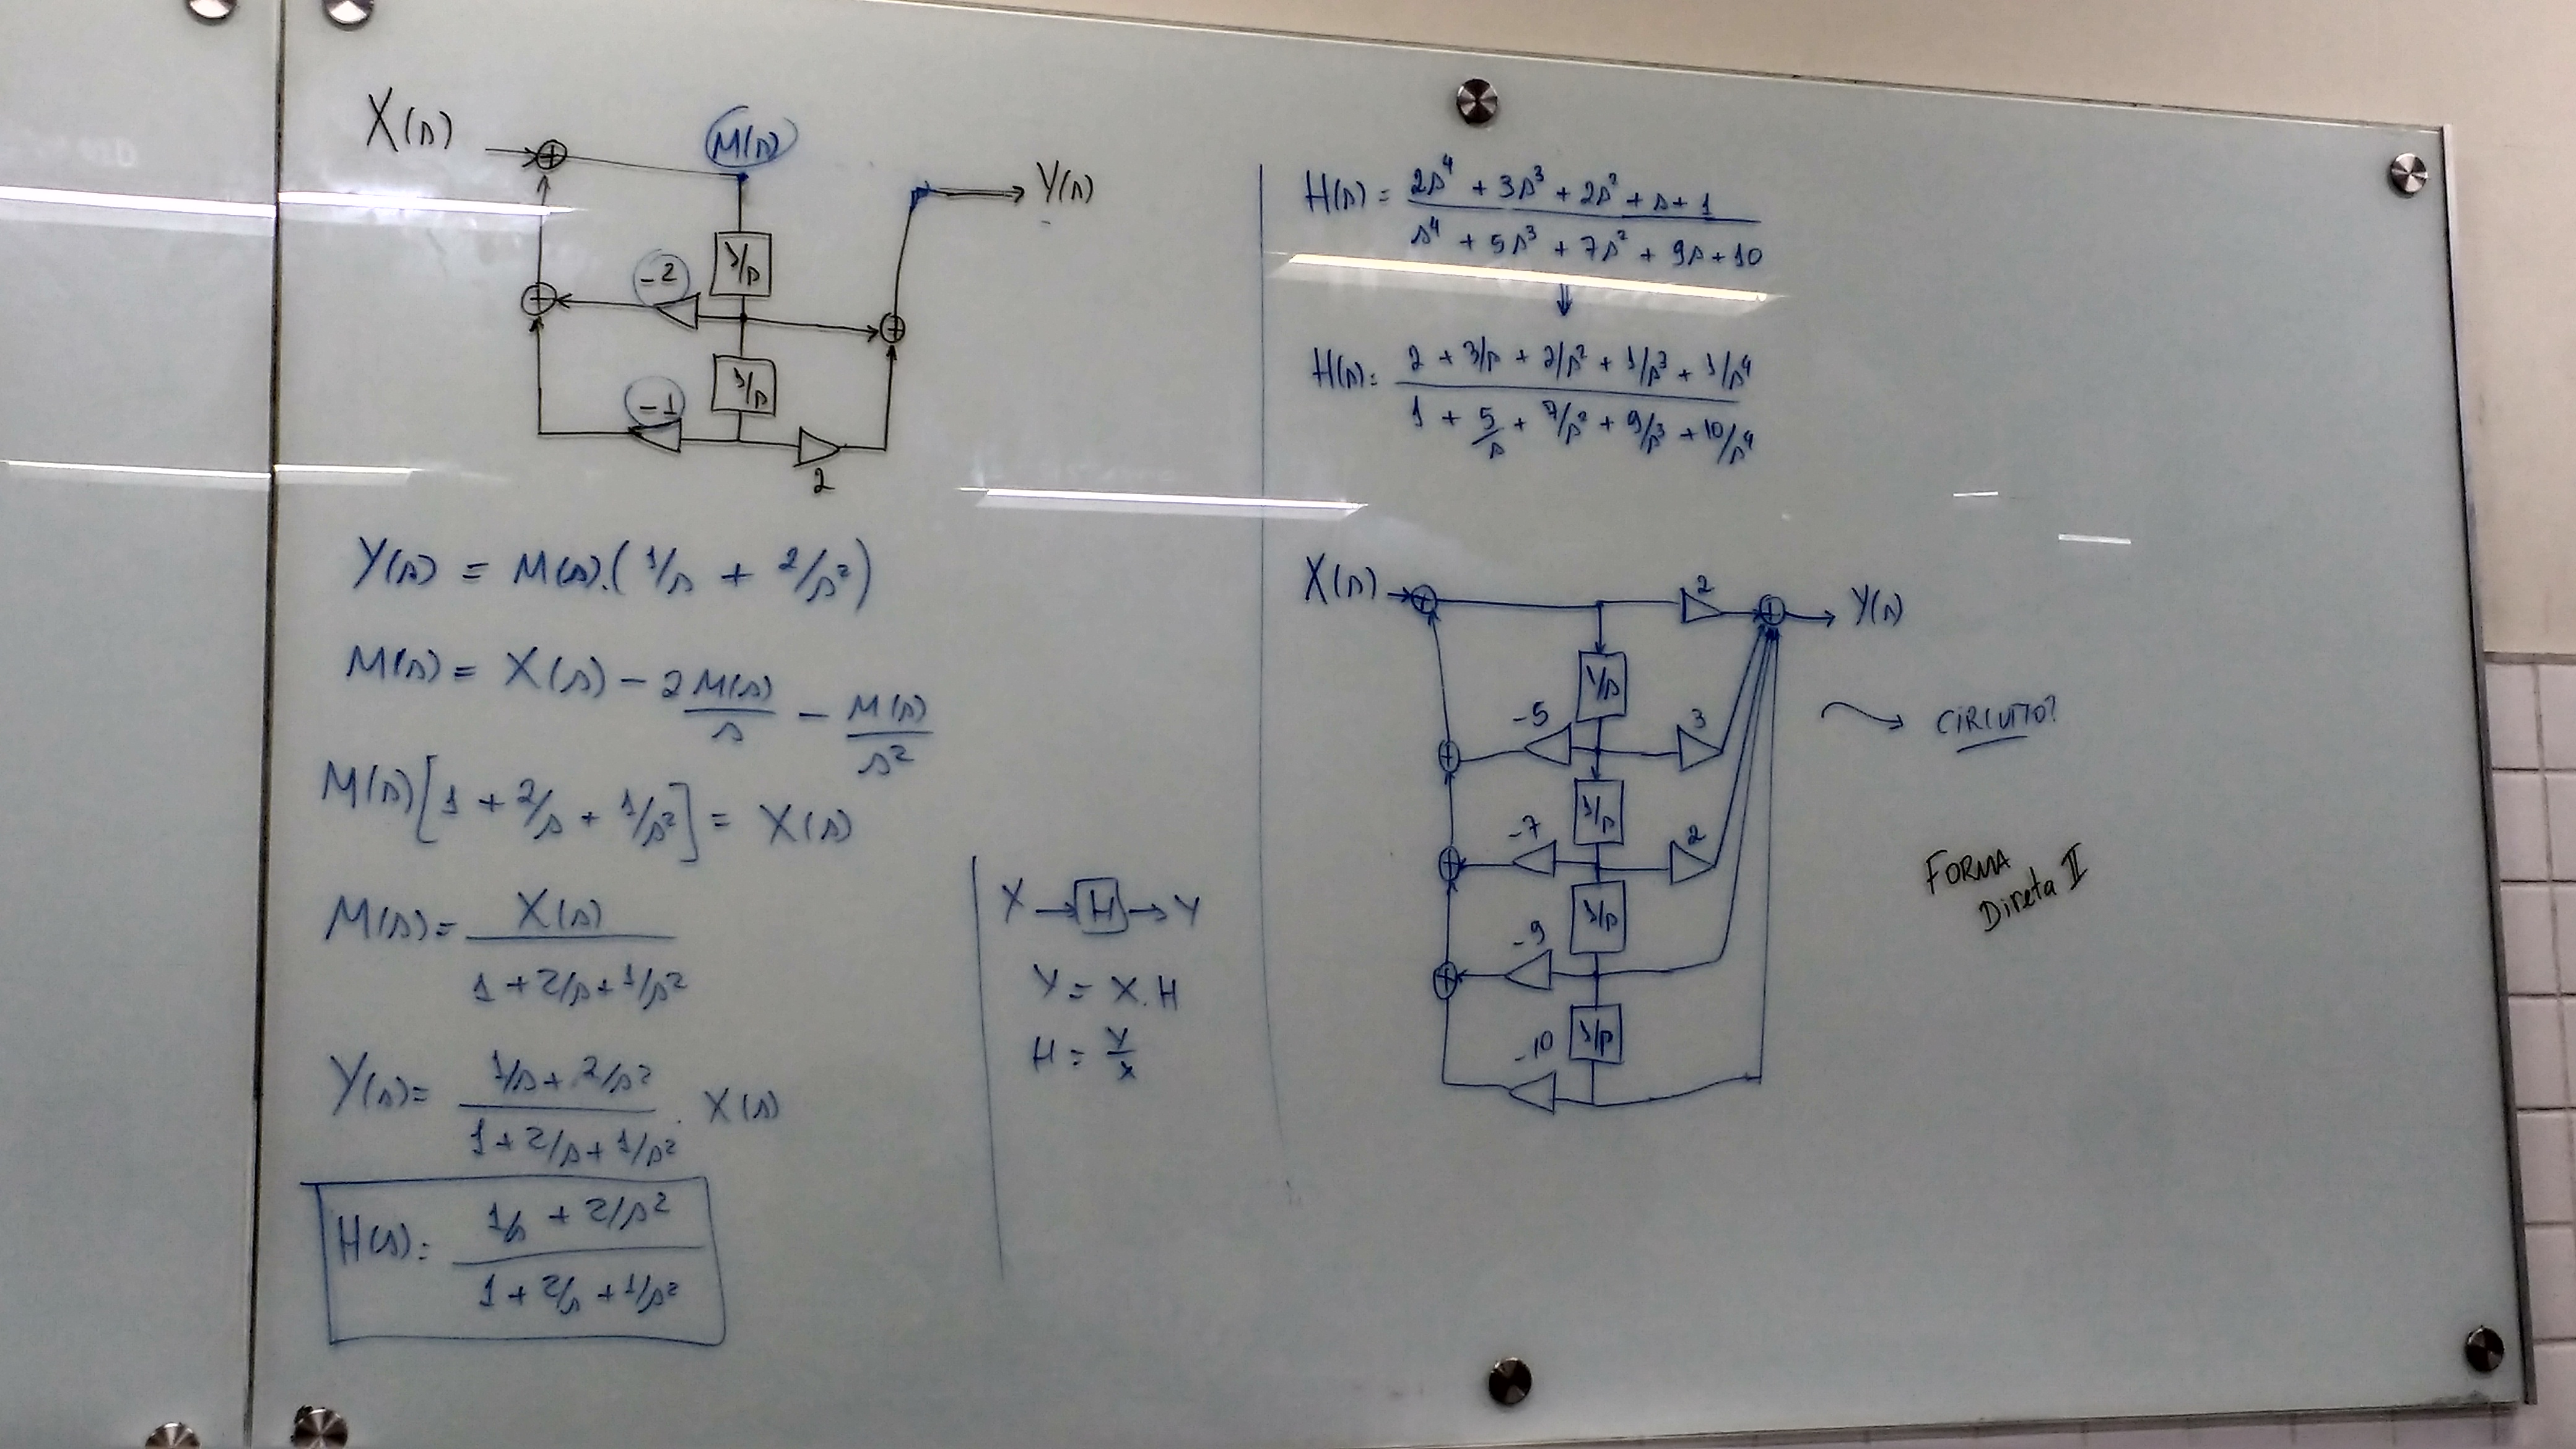 X(s)
M(s)
Y(s)
1/s
-2
1/s
-1
2
Y(s) = M(s).(1/s + 2/s²)
M(s) = X(s) - 2 M(s)/s - M(s)/s²
M(s)[1 + 2/s + 1/s²] = X(s)
M(s) = X(s) / (1 + 2/s + 1/s²)
Y(s) = (1/s + 2/s²) / (1 + 2/s + 1/s²) . X(s)
H(s) = (1/s + 2/s²) / (1 + 2/s + 1/s²)
X → H → Y
Y = X.H
H = Y/X
H(s) = (2s⁴ + 3s³ + 2s² + s + 1) / (s⁴ + 5s³ + 7s² + 9s + 10)
⇓
H(s) = (2 + 3/s + 2/s² + 1/s³ + 1/s⁴) / (1 + 5/s + 7/s² + 9/s³ + 10/s⁴)
X(s)
2
Y(s)
1/s
-5
3
1/s
-7
2
1/s
-9
1/s
-10
CIRCUITO?
FORMA
Direta II